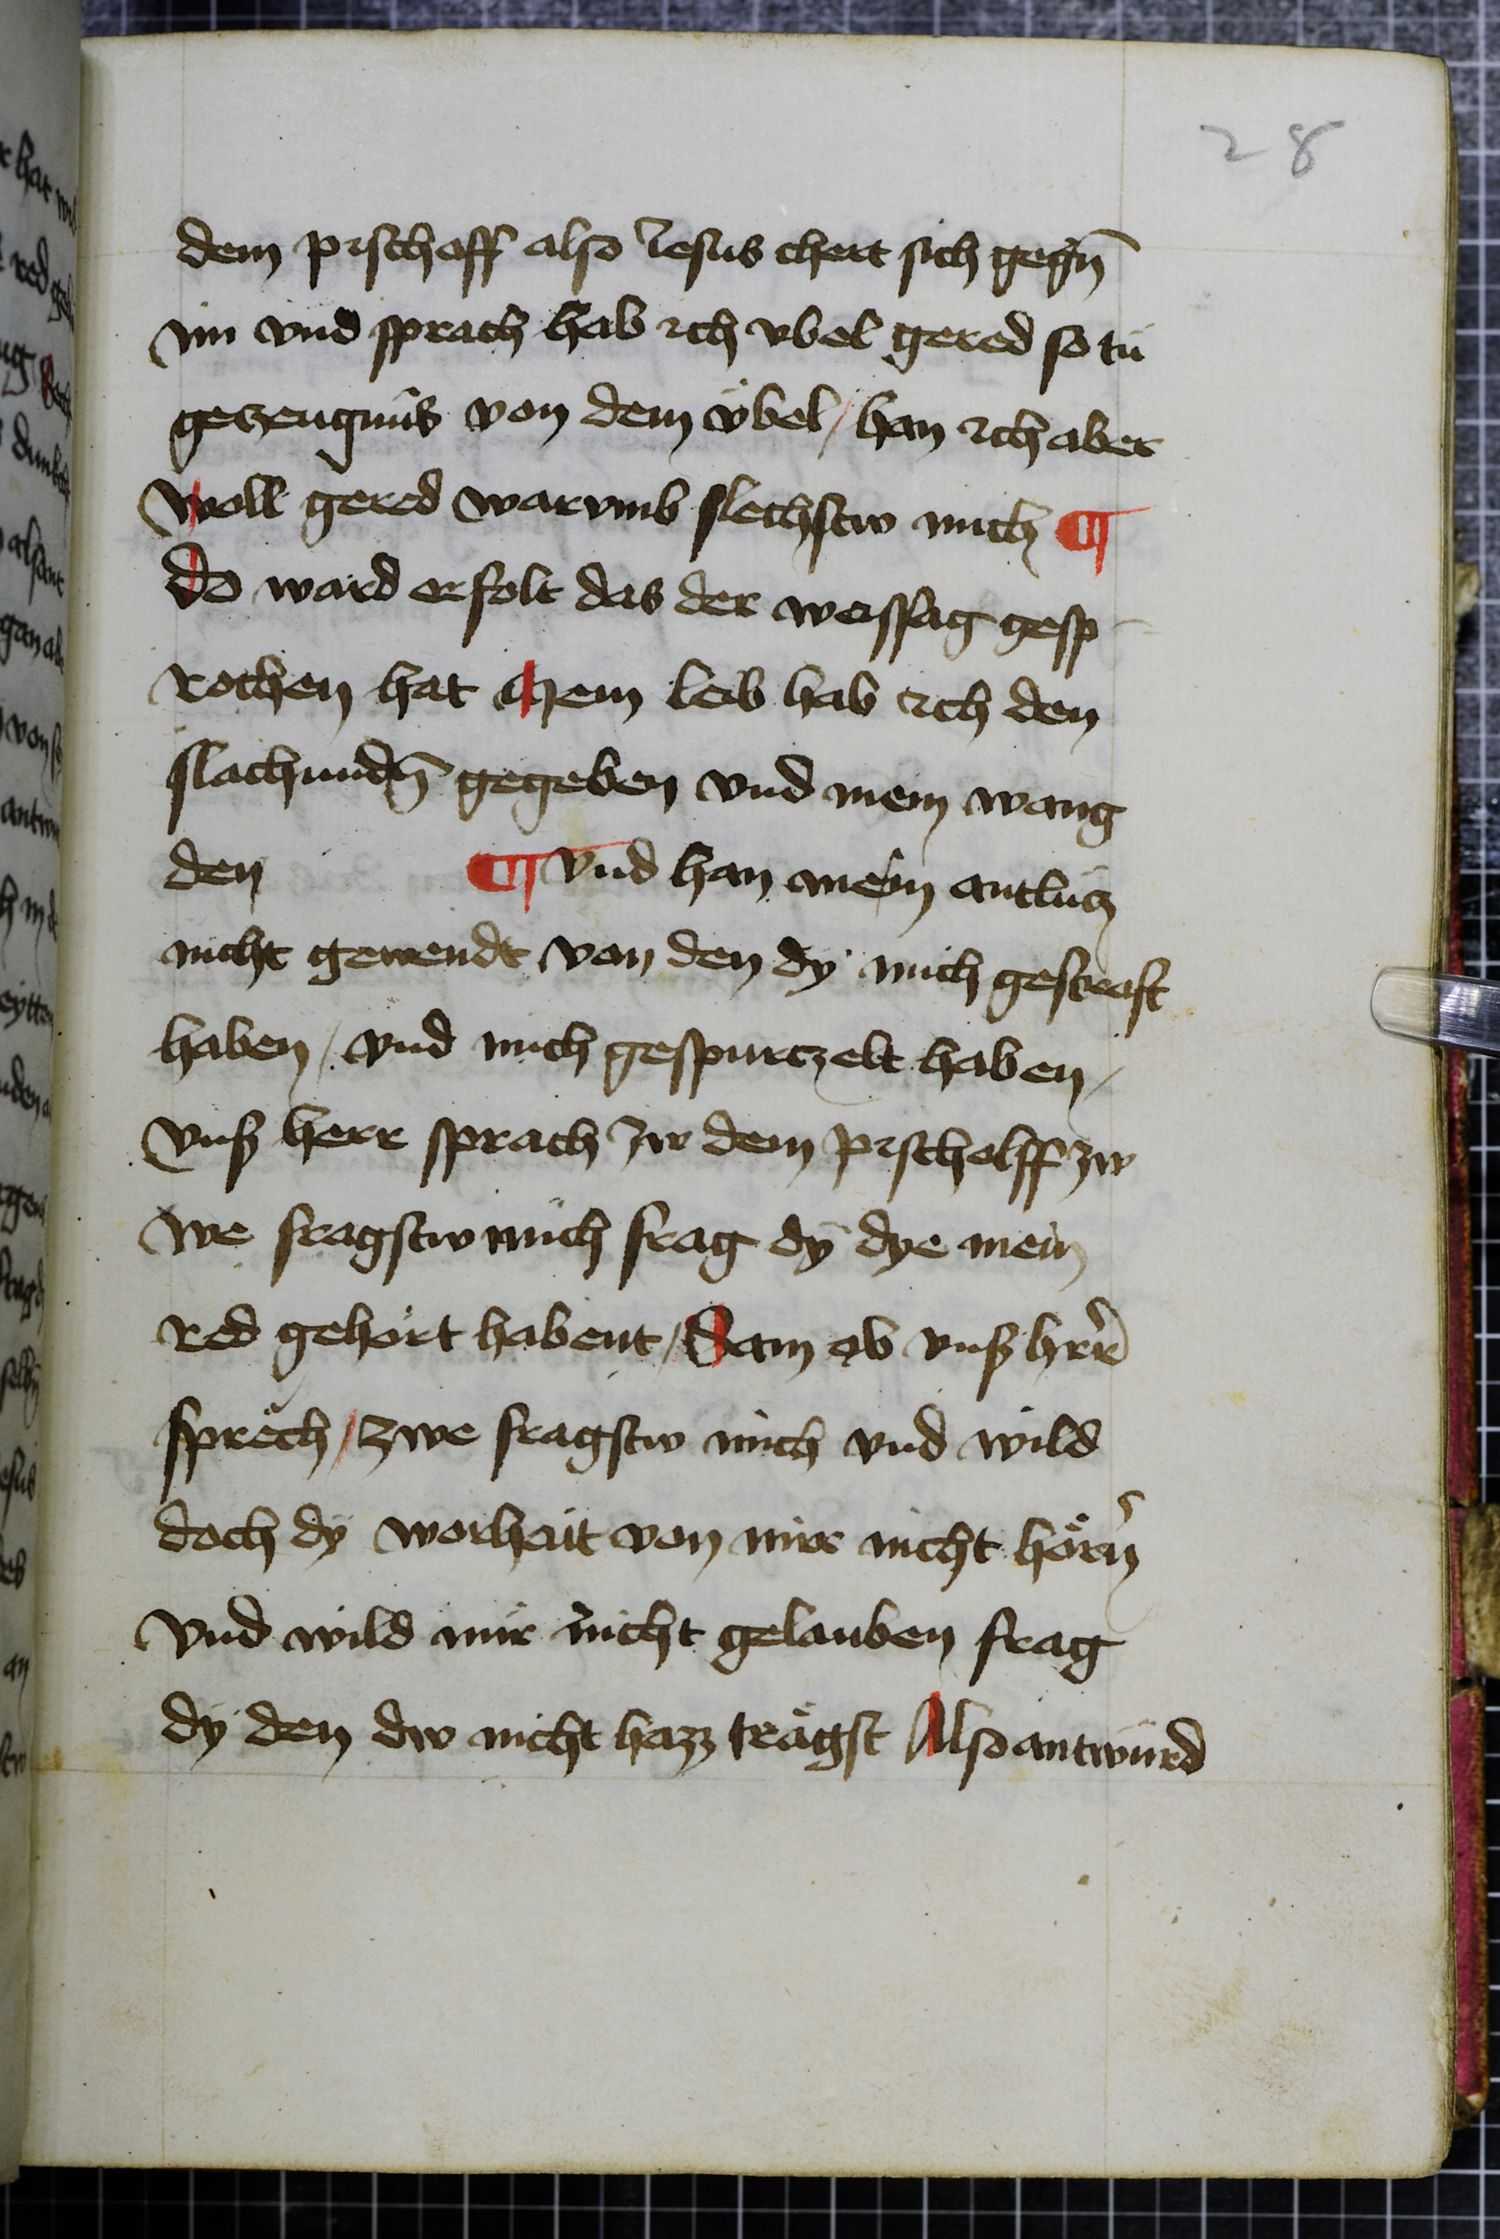 28
dem pischoff also Iesus chert sich gegn̄
im vnd sprach hab ich vbel gered so tü
getzeugnüs von dem übel / han ich aber
woll gered warvmb slechstw mich ¶
do ward erfolt das der weissag gesp
rochen hat Mein leib hab ich den
slachundn̄ gegeben vnd mein wang
den ¶ vnd han mein antlücz
nicht gewendt von den dy mich gestraft
haben / vnd mich gespurczelt haben /
vnß herr sprach zw dem pischolff zw
we fragstw mich frag dy dye mein
red gehört habent / Sam ob vnß hr̄r
sprech / zwe fragstw mich vnd wild
doch dy worheit von mir nicht hörn̄
vnd wild mir nicht gelauben frag
dy den dw nicht hazz trägst Also antwurd